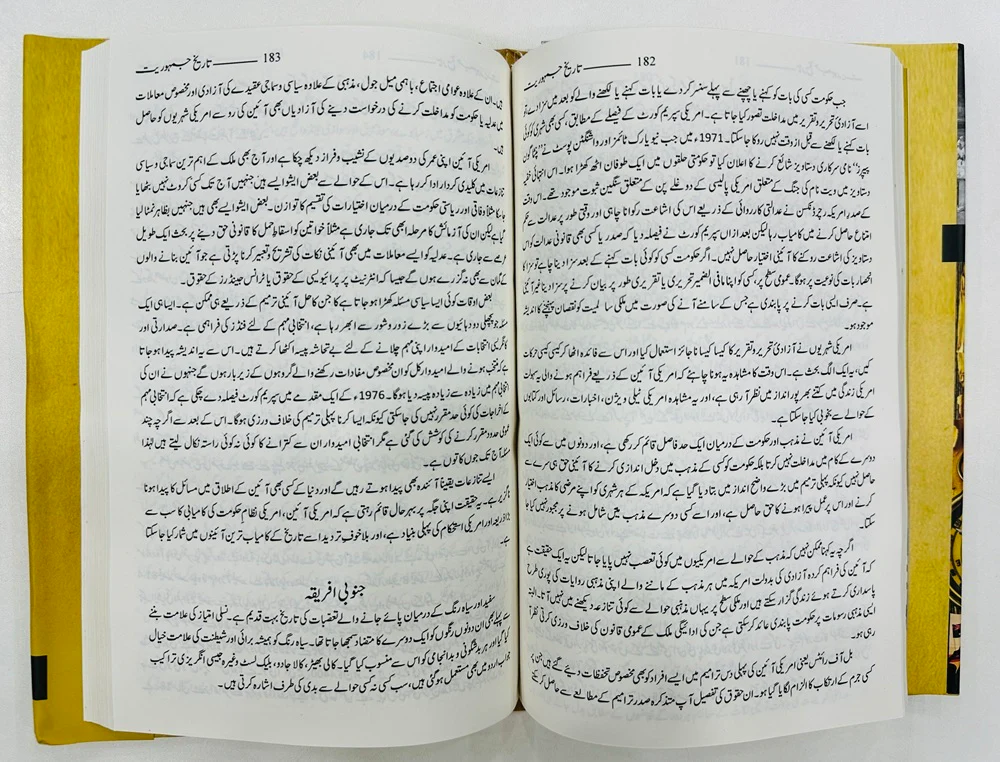 182 ——— تاریخ جمہوریت
جب حکومت کسی کی بات کو کہنے یا چھپنے سے پہلے سنسر کر دے یا بات کہنے یا لکھنے والے کو بعد میں سزا دے تو
اسے آزادیٔ تحریر و تقریر میں مداخلت تصور کیا جاتا ہے۔ امریکی سپریم کورٹ کے فیصلے کے مطابق، کسی بھی شہری کو کوئی
بات کہنے یا لکھنے سے قبل از وقت نہیں روکا جا سکتا۔ 1971ء میں جب نیویارک ٹائمز اور واشنگٹن پوسٹ نے ’’پنٹاگون
پیپرز‘‘ نامی سرکاری دستاویز شائع کرنے کا اعلان کیا تو حکومتی حلقوں میں ایک طوفان اٹھ کھڑا ہوا۔ اس انتہائی خفیہ
دستاویز میں ویت نام کی جنگ کے متعلق امریکی پالیسی کے دوغلے پن کے متعلق سنگین ثبوت موجود تھے۔ اس وقت
کے صدر امریکہ رچرڈ نکسن نے عدالتی کارروائی کے ذریعے اس کی اشاعت رکوانا چاہی اور وقتی طور پر عدالت سے حکم
امتناع حاصل کرنے میں کامیاب رہا لیکن بعد ازاں سپریم کورٹ نے فیصلہ دیا کہ صدر یا کسی بھی قانونی عدالت کو اس
دستاویز کی اشاعت روکنے کا آئینی اختیار حاصل نہیں۔ اگر حکومت کسی کو کوئی بات کہنے کے بعد سزا دینا چاہے تو سزا کا
انحصار بات کی نوعیت پر ہوگا۔ عمومی سطح پر، کسی کو اپنا مافی الضمیر تحریری یا تقریری طور پر بیان کرنے پر سزا دینا غیر آئینی
ہے۔ صرف ایسی بات کرنے پر پابندی ہے جس کے سامنے آنے کی صورت میں ملکی سالمیت کو نقصان پہنچنے کا اندیشہ
موجود ہو۔
امریکی شہریوں نے آزادیٔ تحریر و تقریر کا کیسا کیسا ناجائز استعمال کیا اور اس سے فائدہ اٹھا کر کیسی کیسی حرکات
کیں، یہ ایک الگ بحث ہے۔ اس وقت کا مشاہدہ یہ ہونا چاہئے کہ امریکی آئین کے ذریعے فراہم ہونے والی یہ سہولت
امریکی زندگی میں کتنے بھرپور انداز میں نظر آ رہی ہے، اور یہ مشاہدہ امریکی ٹیلی ویژن، اخبارات، رسائل اور کتابوں
کے حوالے سے بخوبی کیا جا سکتا ہے۔
امریکی آئین نے مذہب اور حکومت کے درمیان ایک حد فاصل قائم کر رکھی ہے، اور دونوں میں سے کوئی ایک
دوسرے کے کام میں مداخلت نہیں کرتا بلکہ حکومت کو کسی کے مذہب میں دخل اندازی کرنے کا آئینی حق ہی سرے سے
حاصل نہیں کیونکہ پہلی ترمیم میں بڑے واضح انداز میں بتا دیا گیا ہے کہ امریکہ کے ہر شہری کو اپنے مرضی کا مذہب اختیار
کرنے اور اس پر عمل پیرا ہونے کا حق حاصل ہے، اور اسے کسی دوسرے مذہب میں شامل ہونے پر مجبور نہیں کیا جا
سکتا۔
اگرچہ یہ کہنا ممکن نہیں کہ مذہب کے حوالے سے امریکیوں میں کوئی تعصب نہیں پایا جاتا لیکن یہ ایک حقیقت ہے
کہ آئین کی فراہم کردہ آزادی کی بدولت امریکہ میں ہر مذہب کے ماننے والے اپنی مذہبی روایات کی پوری طرح
پاسداری کرتے ہوئے زندگی گزار سکتے ہیں اور ملکی سطح پر یہاں مذہبی حوالے سے کوئی تنازعہ دیکھنے میں نہیں آتا۔ البتہ
ایسی مذہبی رسومات پر حکومت پابندی عائد کر سکتی ہے جن کی ادائیگی ملک کے عمومی قانون کی خلاف ورزی کرتی نظر آ
رہی ہو۔
بل آف رائٹس یعنی امریکی آئین کی پہلی دس ترامیم میں ایسے افراد کو بھی مخصوص تحفظات دیئے گئے ہیں جن پر
کسی جرم کے ارتکاب کا الزام لگایا گیا ہو۔ ان حقوق کی تفصیل آپ متذکرہ صدر ترامیم کے مطالعے سے حاصل کر سکتے
183 ——— تاریخ جمہوریت
ہیں۔ ان کے علاوہ عوامی اجتماع، باہمی میل جول، مذہبی کے علاوہ سیاسی و سماجی عقیدے کی آزادی اور مخصوص معاملات
میں عدلیہ یا حکومت کو مداخلت کرنے کی درخواست دینے کی آزادیاں بھی آئین کی رو سے امریکی شہریوں کو حاصل
ہیں۔
امریکی آئین اپنی عمر کی دو صدیوں کے نشیب و فراز دیکھ چکا ہے اور آج بھی ملک کے اہم ترین سماجی و سیاسی
تنازعات میں کلیدی کردار ادا کر رہا ہے۔ اس کے حوالے سے بعض ایشو ایسے ہیں جنہیں آج تک کسی کروٹ نہیں بٹھایا
جا سکا مثلاً وفاقی اور ریاستی حکومت کے درمیان اختیارات کی تقسیم کا توازن۔ بعض ایشو ایسے بھی ہیں جنہیں بظاہر نمٹا لیا
گیا ہے لیکن ان کی آزمائش کا مرحلہ ابھی تک جاری ہے مثلاً خواتین کو اسقاط حمل کا قانونی حق دینے پر بحث ایک طویل
عرصے سے جاری ہے۔ عدلیہ کو ایسے معاملات میں بھی آئینی نکات کی تشریح و تعبیر کرنا پڑتی ہے جو آئین بنانے والوں
کے گمان سے بھی نہ گزرے ہوں گے جیسا کہ انٹرنیٹ پر پرائیویسی کے حقوق یا ٹرانس جینڈرز کے حقوق۔
بعض اوقات کوئی ایسا سیاسی مسئلہ کھڑا ہو جاتا ہے کا جن کا حل آئینی ترمیم کے ذریعے ہی ممکن ہے۔ ایسا ہی ایک
مسئلہ جو پچھلی دو دہائیوں سے بڑے زور و شور سے ابھر رہا ہے، انتخابی مہم کے لئے فنڈز کی فراہمی ہے۔ صدارتی اور
کانگریسی انتخابات کے امیدوار اپنی مہم چلانے کے لئے بے تحاشہ پیسہ اکٹھا کرتے ہیں۔ اس سے یہ اندیشہ پیدا ہو جاتا
ہے کہ منتخب ہونے والے امیدوار کل کو ان مخصوص مفادات رکھنے والے گروہوں کے زیر بار ہوں گے جنہوں نے ان کی
انتخابی مہم میں زیادہ سے زیادہ پیسہ دیا ہوگا۔ 1976ء کے ایک مقدمے میں سپریم کورٹ فیصلہ دے چکی ہے کہ انتخابی مہم
کے اخراجات کی کوئی حد مقرر نہیں کی جا سکتی کیونکہ ایسا کرنا پہلی ترمیم کی خلاف ورزی ہوگا۔ اس کے بعد سے اگرچہ چند
عمومی حدود مقرر کرنے کی کوشش کی گئی ہے مگر انتخابی امیدوار ان سے کترانے کا کوئی نہ کوئی راستہ نکال لیتے ہیں لہٰذا
مسئلہ آج تک جوں کا توں ہے۔
ایسے تنازعات یقیناً آئندہ بھی پیدا ہوتے رہیں گے اور دنیا کے کسی بھی آئین کے اطلاق میں مسائل کا پیدا ہونا
ناگزیر ہے۔ یہ حقیقت اپنی جگہ پر بہرحال قائم رہتی ہے کہ امریکی آئین، امریکی نظام حکومت کی کامیابی کا سب سے
بڑا ذریعہ اور امریکی استحکام کی پہلی بنیاد ہے، اور بلا خوف تردید اسے تاریخ کے کامیاب ترین آئینوں میں شمار کیا جا سکتا
ہے۔
جنوبی افریقہ
سفید اور سیاہ رنگ کے درمیان پائے جانے والے تعصبات کی تاریخ بہت قدیم ہے۔ نسلی امتیاز کی علامت بننے
سے پہلے بھی ان دونوں رنگوں کو ایک دوسرے کا متضاد سمجھا جاتا تھا۔ سیاہ رنگ کو ہمیشہ برائی اور شیطنت کی علامت خیال
کیا گیا اور ہر بدشگونی و بدانجامی کو اس سے منسوب کیا گیا۔ کالی بھیڑ، کالا جادو، بلیک لسٹ وغیرہ جیسی انگریزی تراکیب
جواب اردو میں بھی مستعمل ہو گئی ہیں، سب کسی نہ کسی حوالے سے بدی کی طرف اشارہ کرتی ہیں۔